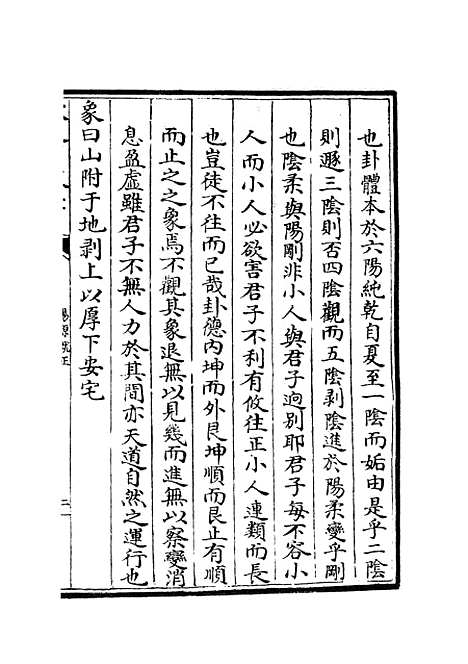 也卦體本於六陽純乾自夏至一陰而姤由是乎二陰
則遯三陰則否四陰觀而五陰剥陰進於陽柔變乎剛
也陰柔與陽剛非小人與君子逈别耶君子每不容小
人而小人必欲害君子不利有攸往正小人連類而長
也豈徒不往而已哉卦德内坤而外艮坤順而艮止有順
而止之之象焉不觀其象退無以見幾而進無以察變消
息盈虛雖君子不無人力於其間亦天道自然之運行也
象曰山附于地剥上以厚下安宅